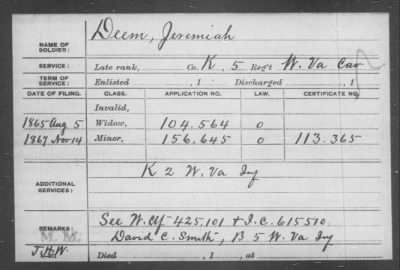 NAME OF SOLDIER: Deem, Jeremiah
SERVICE: Late rank, Co. K, 5 Reg't W. Va Cav
TERM OF SERVICE: Enlisted , 1 Discharged , 1
DATE OF FILING. CLASS. APPLICATION NO. LAW. CERTIFICATE NO.
Invalid,
1865 Aug 5 Widow, 104.564 o
1867 Nov 14 Minor, 156.645 o 113.365
ADDITIONAL SERVICES: K 2 W. Va Inf
REMARKS: See W. Ctf 425.101 + I.C. 615510
M.M. David C. Smith, B 5 W. Va Inf
J.H.W. Died , 1 , at